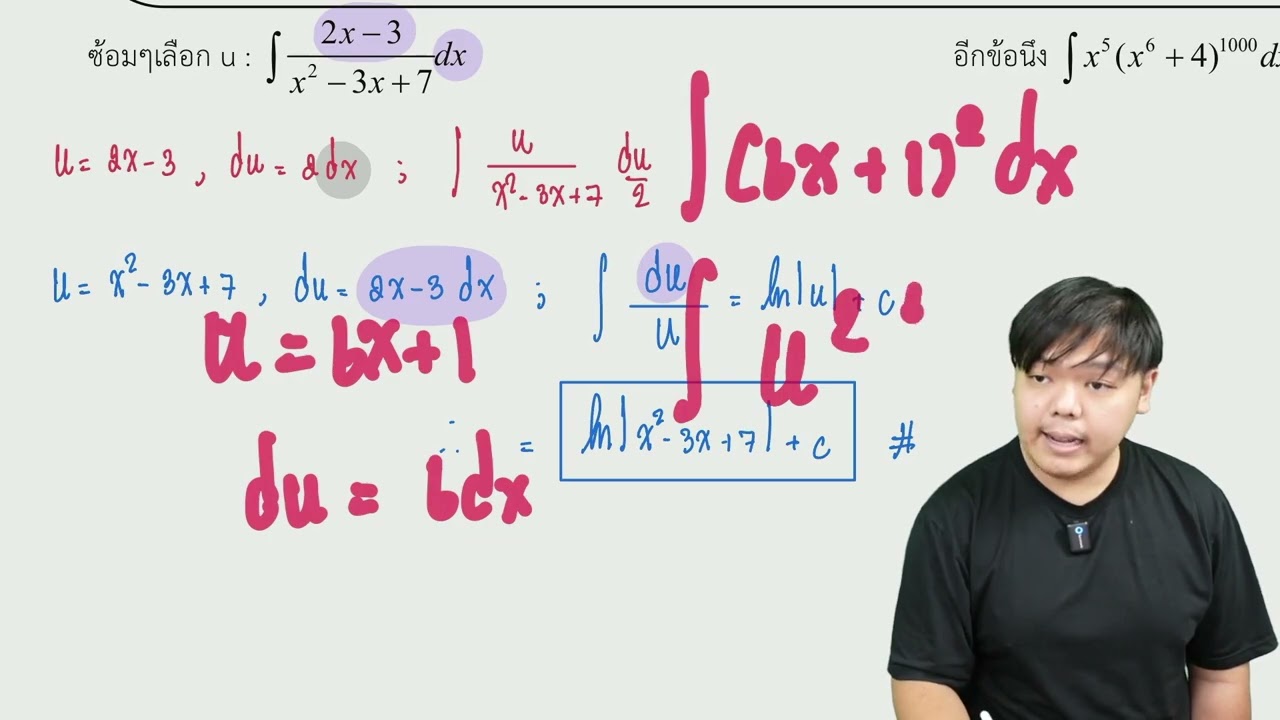 ซ้อมๆเลือก u : ∫ (2x − 3)/(x² − 3x + 7) dx
อีกข้อนึง ∫ x⁵(x⁶ + 4)¹⁰⁰⁰ dx
u = 2x - 3 , du = 2 dx ; ∫ u/(x² - 3x + 7) du/2
∫ (6x + 1)² dx
u = x² - 3x + 7 , du = 2x-3 dx ; ∫ du/u = ln|u| + c
u = 6x+1
∫ u²
∴ = ln|x² - 3x + 7| + c #
du = 6dx